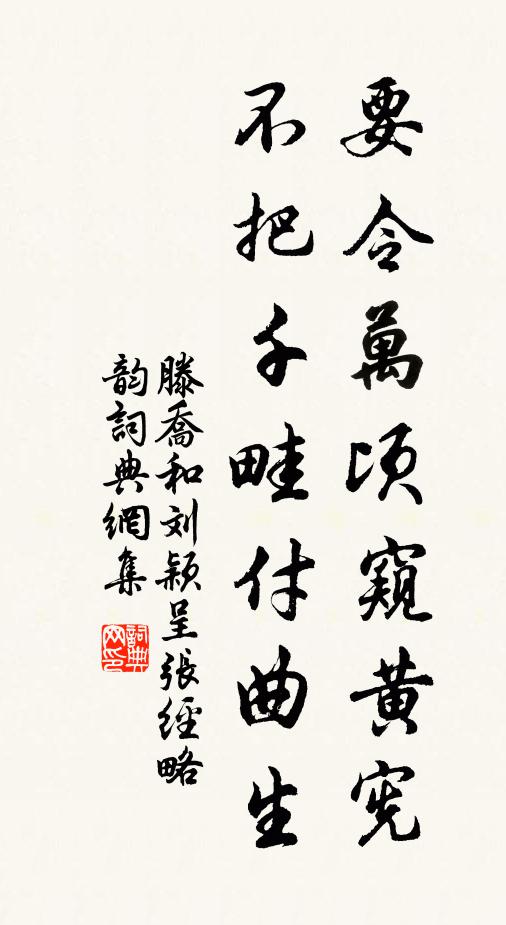 要令萬頃窺黄宪
不把千畦付曲生
滕喬和刘颖呈張經略
韵詞典網集
詞典网印